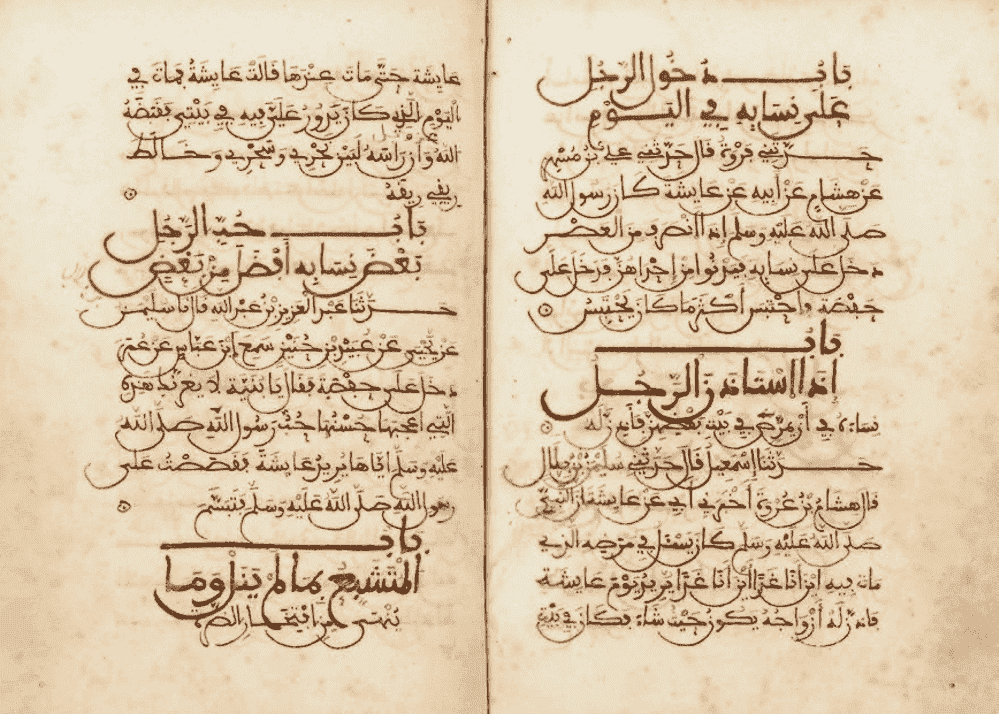 باب دخول الرجل
على نسايه في اليوم
حدثني فروة قال حدثني علي بن مسهر
عن هشام عن ابيه عن عايشة كان رسول الله
صلى الله عليه وسلم اذا انصرف من العصر
دخل على نسايه فيدنوا من احداهن فدخل على
حفصة واحتبس اكثر ما كان يحتبس
باب
اذا استاذن الرجل
نساءه في أن يمرض في بيت بعضهن فأذن له
حدثنا إسمعيل قال حدثني سليمن بن بلال
قال هشام بن عروة أخبرني أبي عن عايشة أن النبي
صلى الله عليه وسلم كان يسئل في مرضه الذي
مات فيه اين أنا غدا أين أنا غدا يريد يوم عايشة
فاذن له أزواجه يكون حيث شاء فكان في بيت
عايشة حتى مات عندها قالت عايشة فمات في
اليوم الذي كان يدور علي فيه في بيتي فقبضه
الله وأن رأسه لبين نحري وسحري وخالط
ريقي ريقه
باب حب الرجل
بعض نسايه أفضل من بعض
حدثنا عبد العزيز بن عبد الله قال نا سليمن
عن يحيى عن عبيد بن حنين سمع ابن عباس عن عمر
دخل على حفصة فقال يا بنية لا يغرنك هذه
التي أعجبها حسنها حب رسول الله صلى الله
عليه وسلم اياها يريد عايشة فقصصت على
رسول الله صلى الله عليه وسلم فتبسم
باب
المتشبع بما لم ينل وما
ينهى من افتخار الضرة